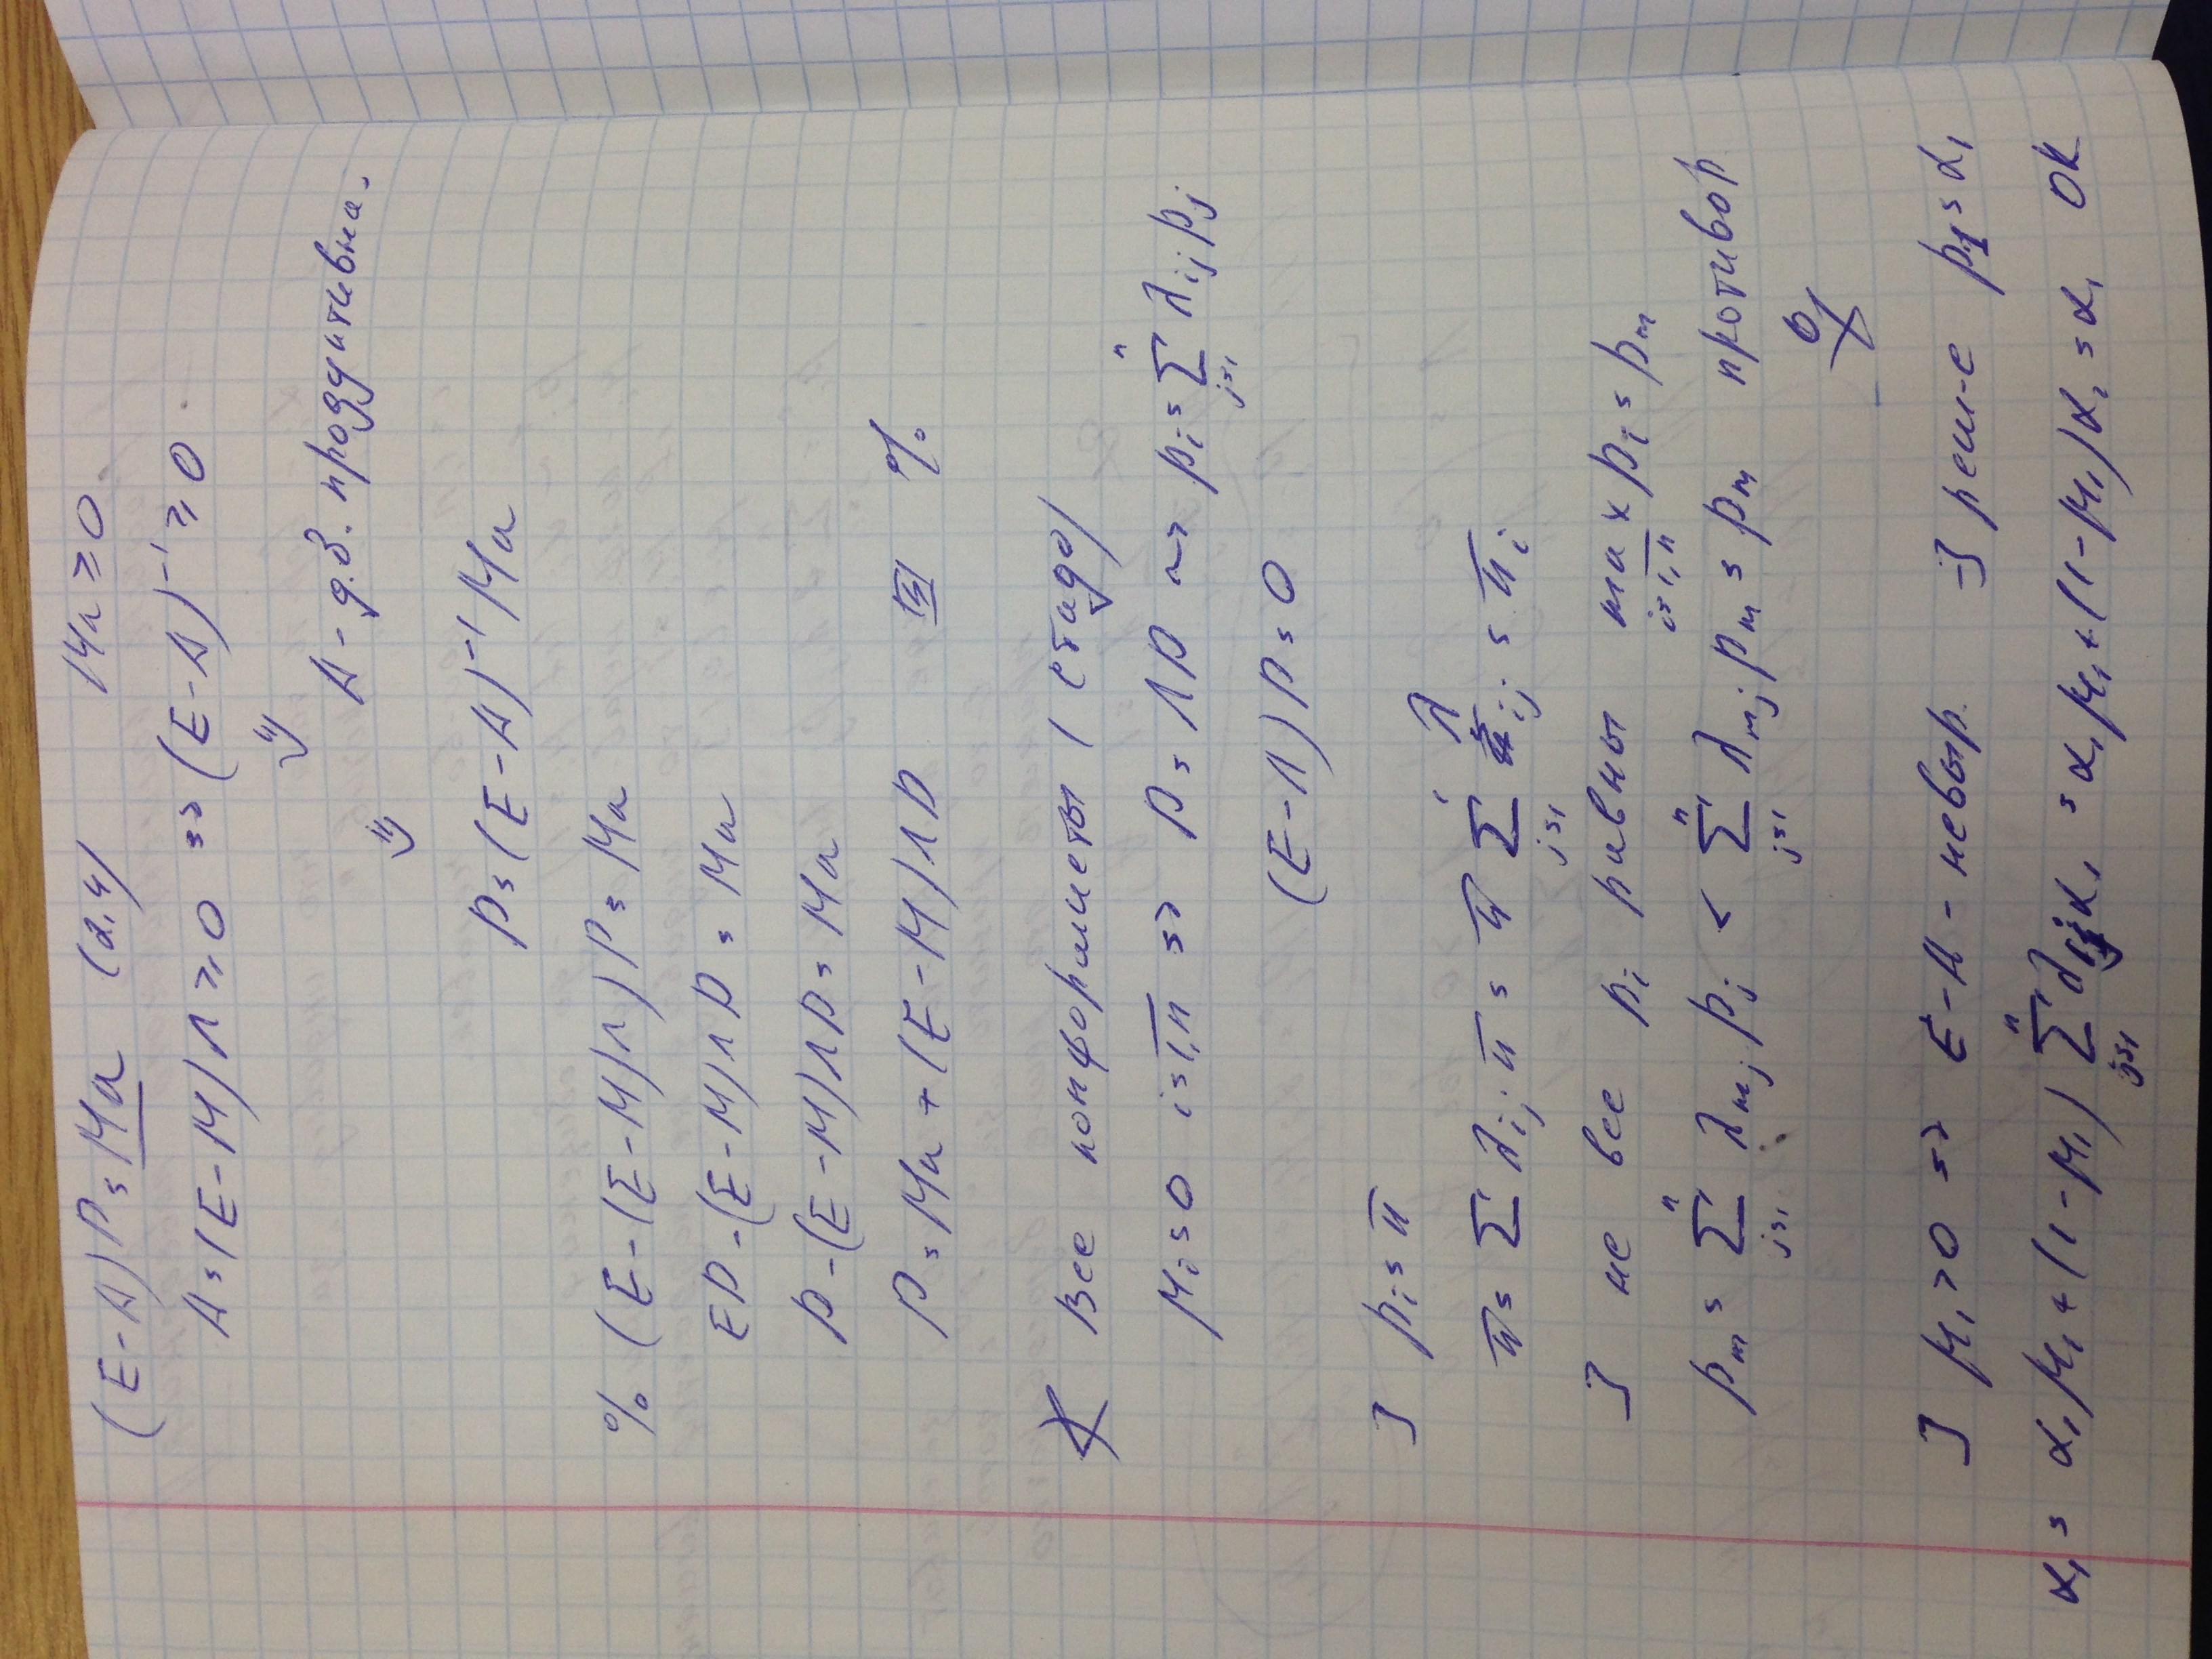 (E-A)P=Mα (2.4) Mα≥0
A=(E-M)Λ≥0 => (E-A)⁻¹≥0
⇓
A-д.б. продуктивна.
⇓
P=(E-A)⁻¹Mα
% (E-(E-M)Λ)P=Mα
EP-(E-M)ΛP=Mα
P-(E-M)ΛP=Mα
P=Mα+(E-M)ΛP %
Все конформисты (стадо)
μᵢ=0 i=1,n => P=ΛP ~> pᵢ=∑ⁿⱼ₌₁ λᵢⱼpⱼ
(E-Λ)P=0
] pᵢ=π̄
π̄=∑ λᵢⱼπ̄=π̄ ∑ⱼ₌₁ λᵢⱼ=π̄.
] не все pᵢ равны max pᵢ=pₘ
i=1,n
pₘ=∑ⁿⱼ₌₁ λₘⱼpⱼ < ∑ⁿⱼ₌₁ λₘⱼpₘ=pₘ противор
] μ₁>0 => E-A-невыр. ] реш-е p₁=α₁
α₁=α₁μ₁+(1-μ₁)∑ⁿⱼ₌₁ λ₁ⱼα₁=α₁μ₁+(1-μ₁)α₁=α₁ OK